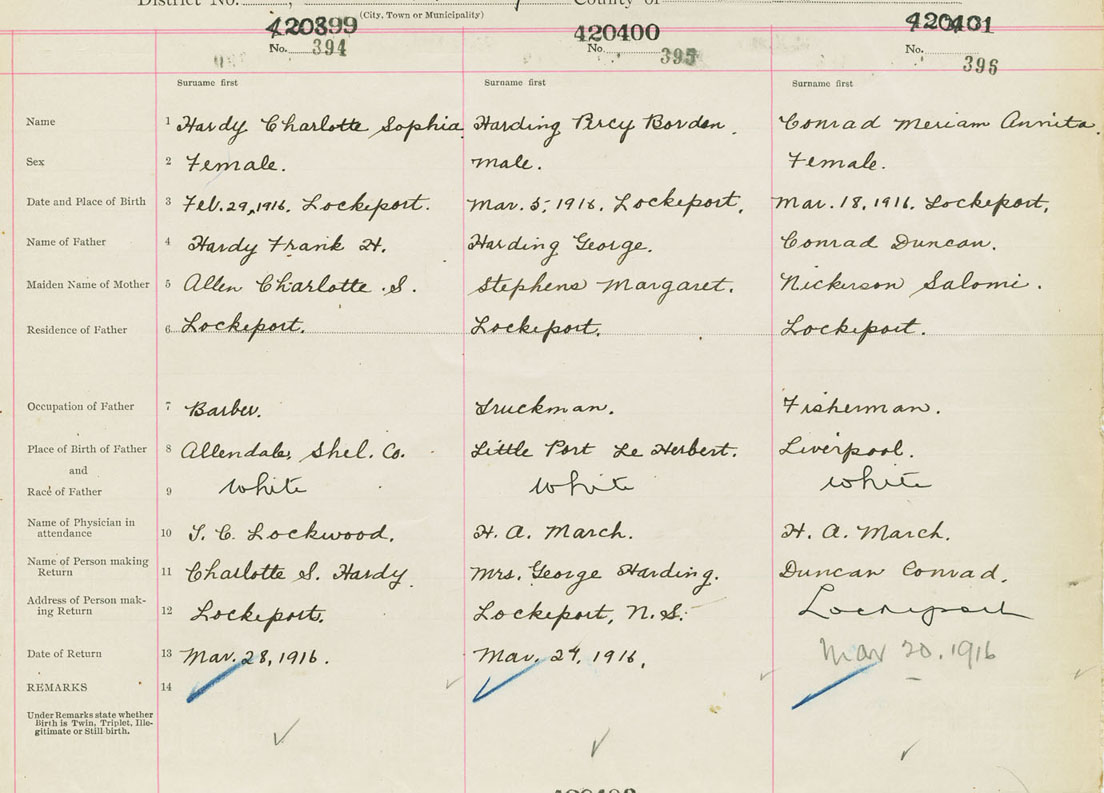 District No. , County of
(City, Town or Municipality)
420399 420400 420401
No. 394 No. 395 No. 396
Surname first Surname first Surname first
Name 1 Hardy Charlotte Sophia Harding Percy Borden. Conrad Meriam Annita.
Sex 2 Female. Male. Female.
Date and Place of Birth 3 Feb. 29, 1916. Lockeport. Mar. 5, 1916. Lockeport. Mar. 18, 1916. Lockeport.
Name of Father 4 Hardy Frank H. Harding George. Conrad Duncan.
Maiden Name of Mother 5 Allen Charlotte S. Stephens Margaret. Nickerson Salomi.
Residence of Father 6 Lockeport. Lockeport. Lockeport.
Occupation of Father 7 Barber. Truckman. Fisherman.
Place of Birth of Father 8 Allendale, Shel. Co. Little Port Le Herbert. Liverpool.
and
Race of Father 9 White White White
Name of Physician in
attendance 10 T. C. Lockwood. H. A. March. H. A. March.
Name of Person making
Return 11 Charlotte S. Hardy. Mrs. George Harding. Duncan Conrad.
Address of Person mak-
ing Return 12 Lockeport. Lockeport, N.S. Lockeport
Date of Return 13 Mar. 28, 1916. Mar. 24, 1916. Mar 20. 1916
REMARKS 14
Under Remarks state whether
Birth is Twin, Triplet, Ille-
gitimate or Still-birth.